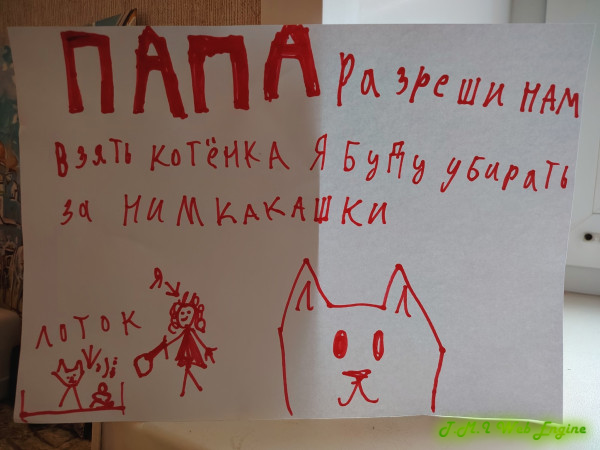 ПАПА разреши нам
взять котёнка я буду убирать
за ним какашки
я
лоток
J.M.V Web Engine